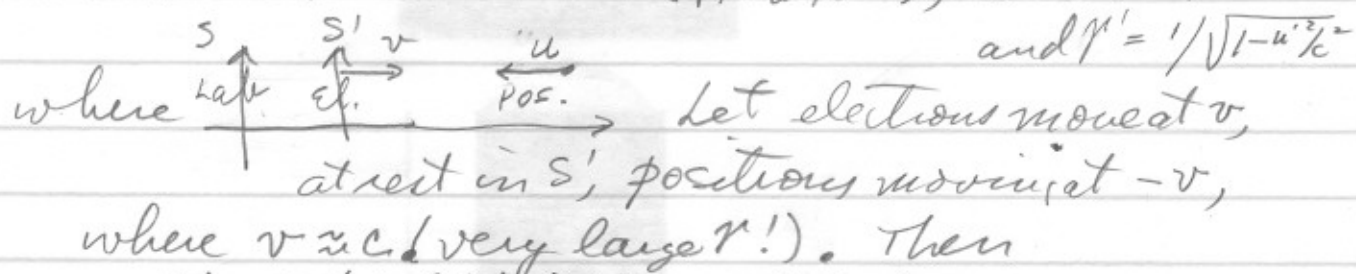 and γ' = 1/√1-u'²/c²
S S' v u
where Lab El. Pos. Let electrons move at v,
at rest in S', positrons moving at -v,
where v ≈ c (very large γ!). Then